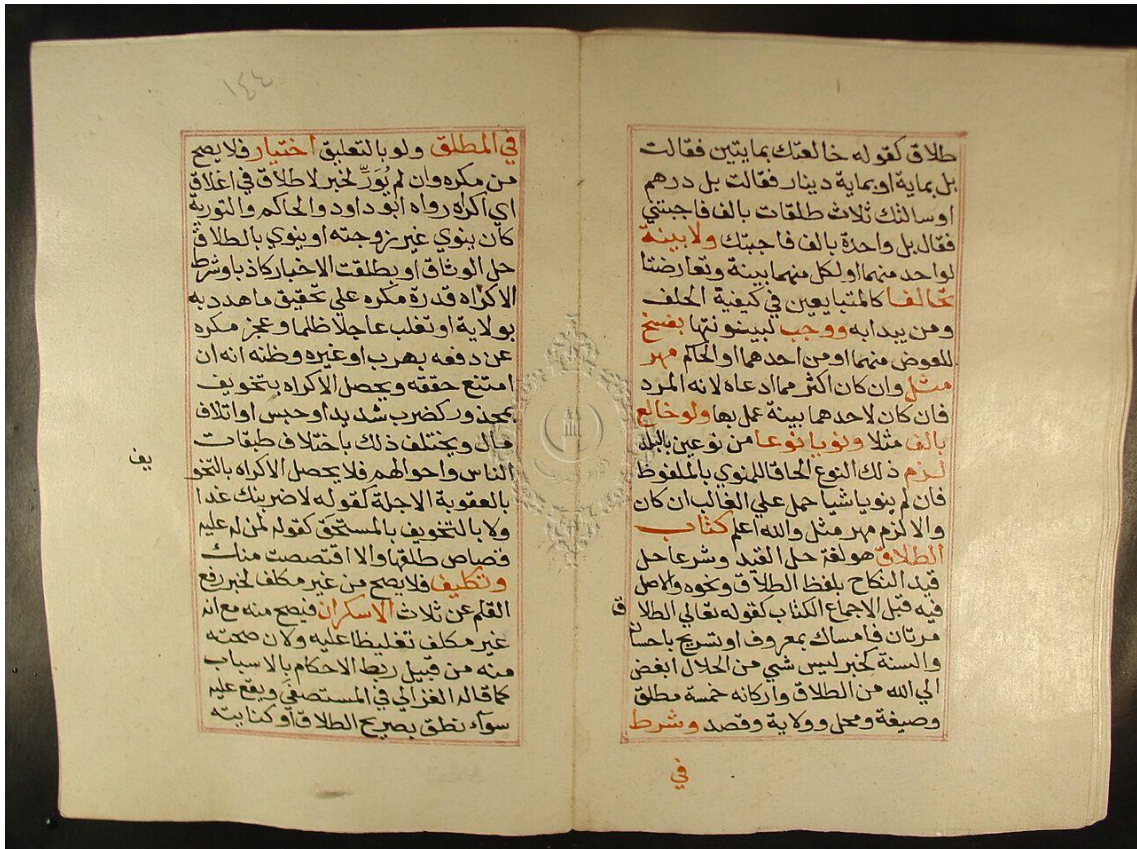 طلاق كقوله خالعتك بمايتين فقالت
بل بماية او بماية دينار فقالت بل درهم
او سالتك ثلاث طلقات بالف فاجبتني
فقال بل واحدة بالف فاجبتك ولا بينة
لواحد منهما او لكل منهما بينة وتعارضتا
تحالفا كالمتبايعين في كيفية الحلف
ومن يبدا به ووجب لبينونتها بفسخ
للعوض منهما او من احدهما او الحاكم مهر
مثل وان كان اكثر مما ادعاه لانه المرد
فان كان لاحدهما بينة عمل بها ولو خالع
بالف مثلا ونويا نوعا من نوعين بالبلد
لزم ذلك النوع الحاقا للمنوي بالملفوظ
فان لم ينويا شيا حمل علي الغالب ان كان
والا لزم مهر مثل والله اعلم كتاب
الطلاق هو لغة حل القيد وشرعا حل
قيد النكاح بلفظ الطلاق ونحوه والاصل
فيه قبل الاجماع الكتاب كقوله تعالي الطلا ق
مرتان فامساك بمعروف او تسريح باحسان
والسنة كخبر ليس شي من الحلال ابغض
الي الله من الطلاق واركانه خمسة مطلق
وصيغة ومحل وولاية وقصد وشرط
في
١٤٤
في المطلق ولو بالتعليق اختيار فلا يصح
من مكره وان لم يُوَرِّ لخبر لا طلاق في اغلاق
اي اكراه رواه ابو داود والحاكم والتورية
كان ينوي غير زوجته او ينوي بالطلاق
حل الوثاق او بطلقت الاخبار كاذبا وشرط
الاكراه قدرة مكره علي تحقيق ما هدد به
بولاية او تغلب عاجلا ظلما وعجز مكره
عن دفعه بهرب او غيره وظنه انه ان
امتنع حققه ويحصل الاكراه بتخويف
بمحذور كضرب شديد او حبس او اتلاف
مال ويختلف ذلك باختلاف طبقات
الناس واحوالهم فلا يحصل الاكراه بالتخو يف
بالعقوبة الاجلة كقوله لاضربنك غدا
ولا بالتخويف بالمستحق كقوله لمن له عليه
قصاص طلقها والا اقتصصت منك
وتكليف فلا يصح من غير مكلف لخبر رفع
القلم عن ثلاث الا سكران فيصح منه مع انه
غير مكلف تغليظا عليه ولان صحته
منه من قبيل ربط الاحكام بالاسباب
كما قاله الغزالي في المستصفي ويقع عليه
سواء نطق بصريح الطلاق او كنايته